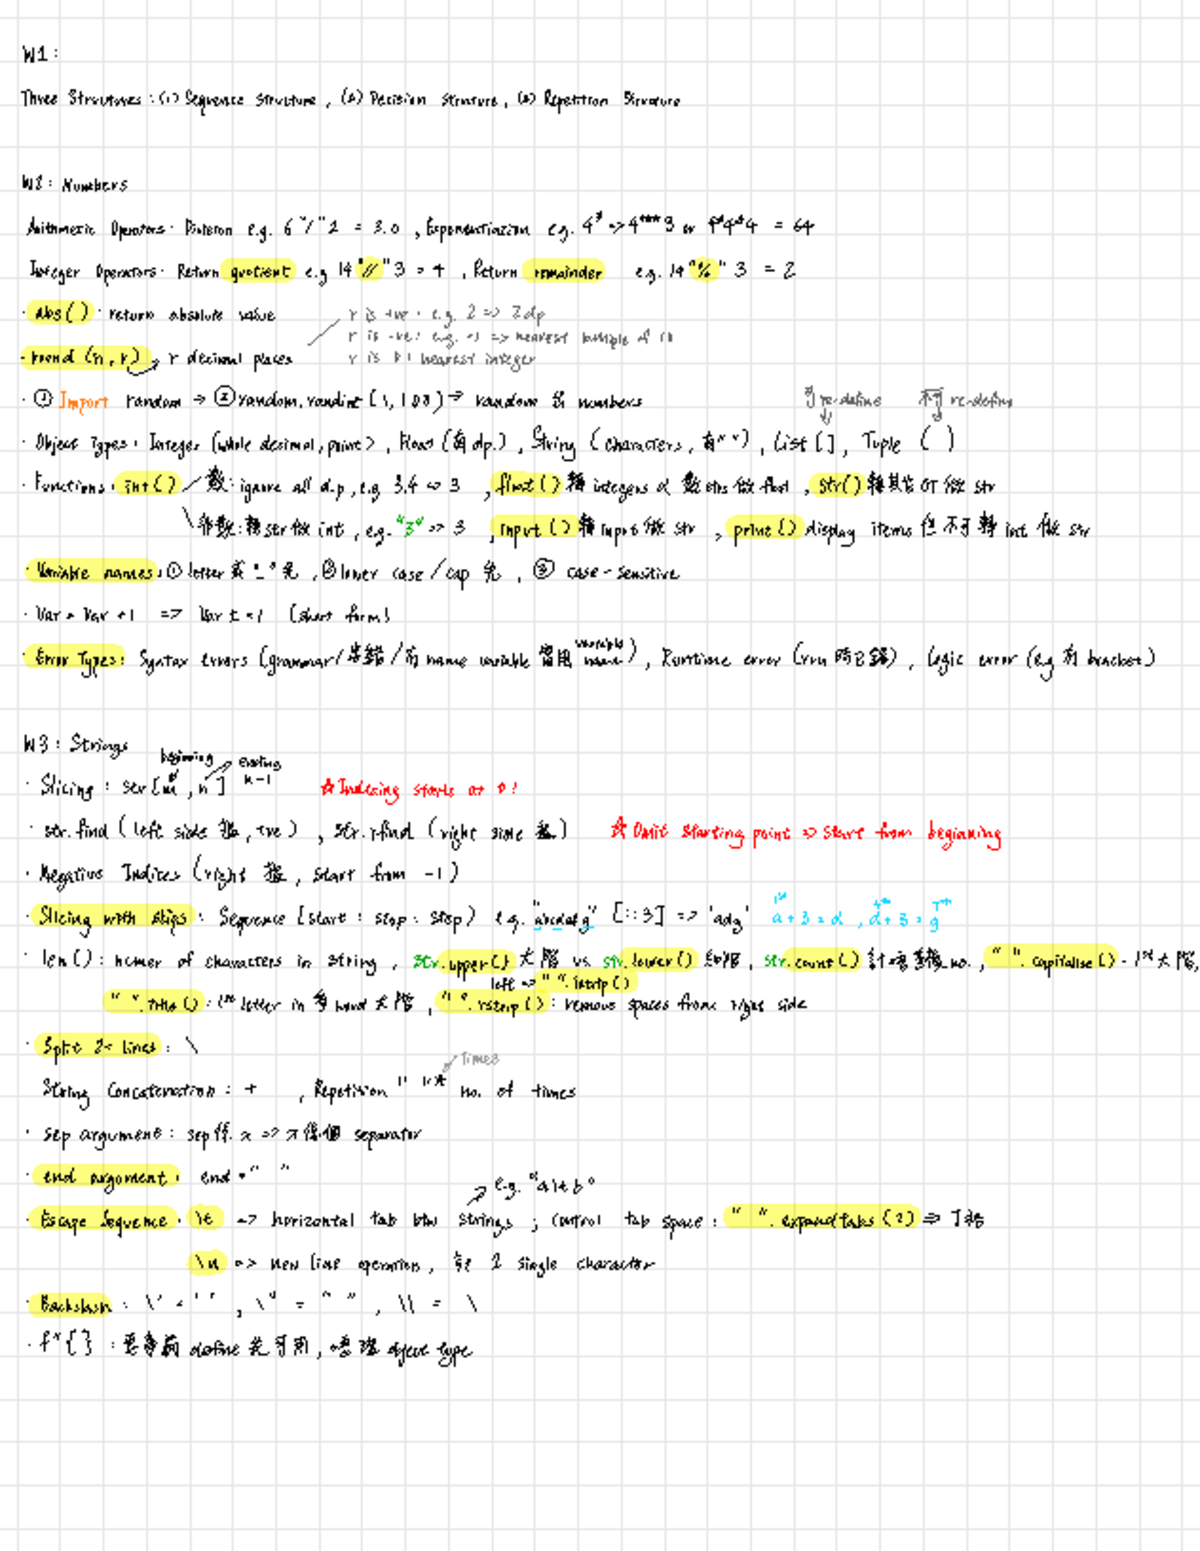 W1 :
Three Structures : (1) Sequence Structure , (2) Decision Structure , (3) Repetition Structure
W2 : Numbers
Arithmetic Operators · Division e.g. 6 "/" 2 = 3.0 , Exponentiation e.g. 4³ => 4**3 or 4*4*4 = 64
Integer Operators · Return quotient e.g 14 "//" 3 = 4 , Return remainder e.g. 14 "%" 3 = 2
· abs( ) · return absolute value
r is +ve : e.g. 2 => 2dp
r is -ve : e.g. -1 => nearest multiple of 10
· round (n, r) , r decimal places
r is 0 : nearest integer
· ① Import random → ② random.randint [1, 100) => random numbers
可 re-define 不可 re-define
· Object Types : Integer (whole decimal, point) , Float (有 dp.) , String (characters, 有" ") , List [ ] , Tuple ( )
· Functions : int( ) 數 : ignore all d.p , e.g 3.4 => 3 , float( ) 轉 integers 做 float , str() 轉其它 做 str
非數 : 轉 str 做 int , e.g. "3" => 3 , input ( ) 轉 input 做 str , print( ) display items 但不可轉 int 做 str
· Variable names : ① letter "_" 先 , ② lower case / cap 先 , ③ case-sensitive
· Var = Var + 1 => Var += 1 (short form)
· Error Types : Syntax errors (grammar/ name variable variable name) , Runtime error (run 時) , Logic error (e.g bracket)
W3 : Strings
beginning ending
n-1
· Slicing : str [m , n ] ☆ Indexing starts at 0 !
· str.find (left side , +ve) , str.rfind (right side ) ☆ Omit Starting point => start from beginning
· Negative Indices (right , start from -1)
· Slicing with skips : Sequence [start : stop : step) e.g. "abcdefg" [::3] => 'adg' 1st a + 3 = d , 4th d + 3 = g 7th
· len( ) : of characters in string , str.upper() 大階 vs str.lower( ) 細階 , str.count( ) no. , " ".capitalise( ) - 1st 大階,
left => " ".lstrip( )
" ".title ( ) : 1st letter in word 大階 , " ".rstrip( ) : remove spaces from right side
· Split 2+ lines : \
times
String Concatenation : + , Repetition " " * no. of times
· sep argument : sep separator
· end argument : end = " "
e.g. "a\tb"
· Escape Sequence · \t => horizontal tab btw strings ; control tab space : " ".expandtabs (2) =>
\n => new line operation , 2 single character
· Backslash : \' = ' ' , \" = " " , \\ = \
· f"{ } : define 先可用 , 唔理 object type